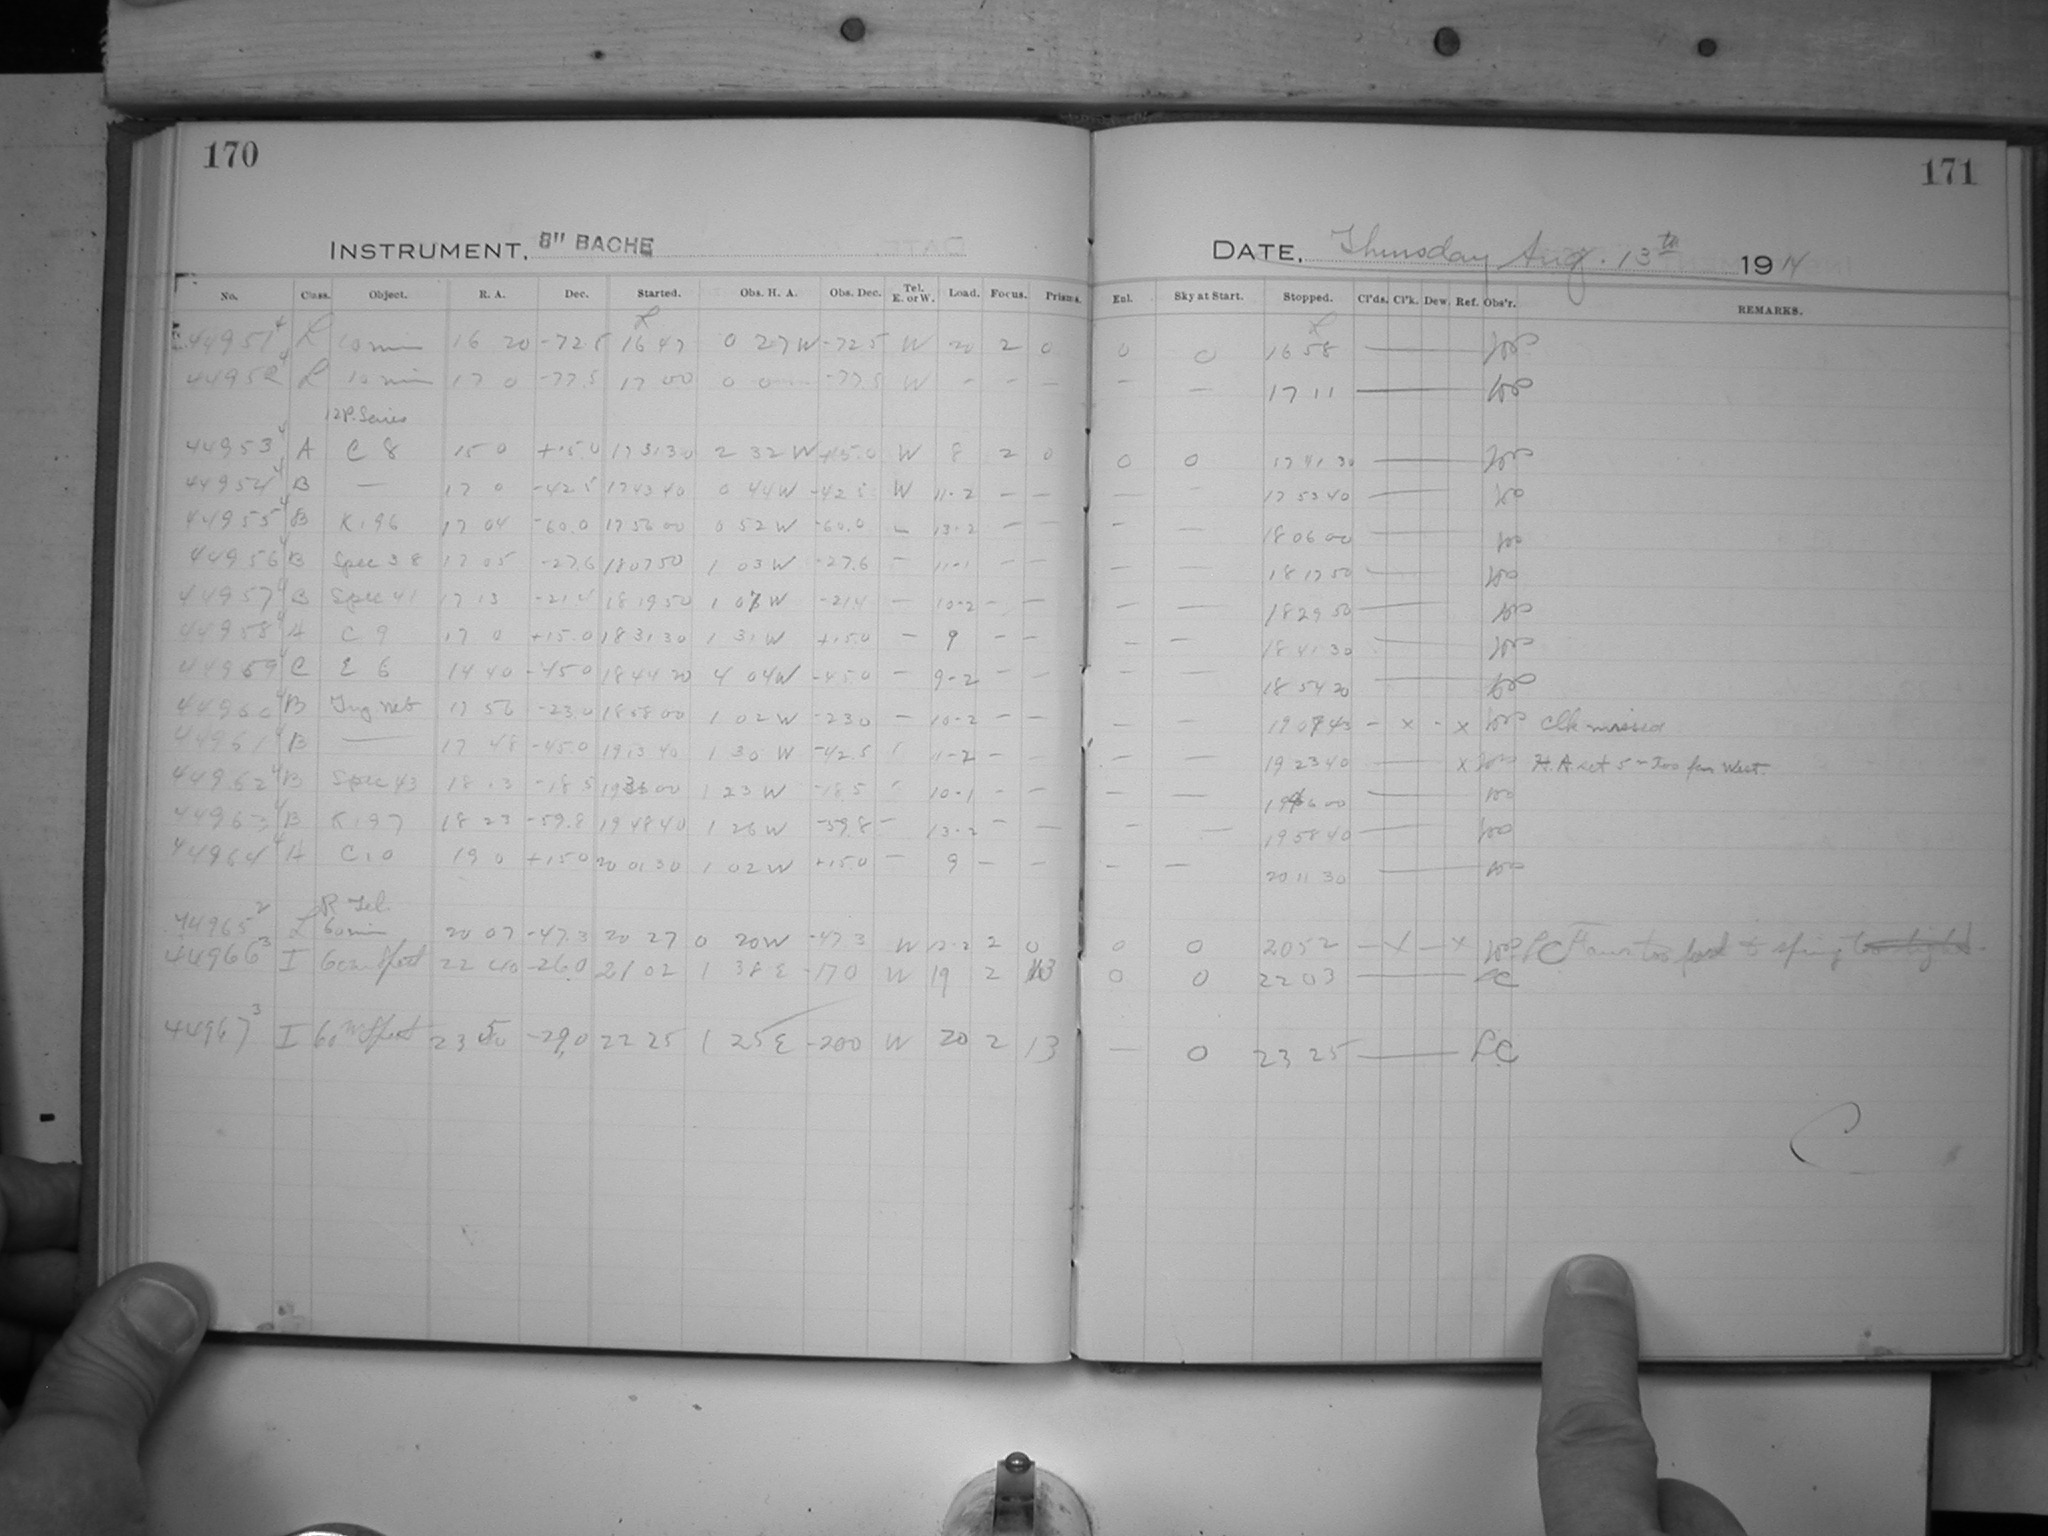 170
INSTRUMENT. 8" BACHE
No. Class. Object. R. A. Dec. Started. Obs. H. A. Obs. Dec. Tel. E. or W. Load. Focus. Prisms.
44951 L 10 min 16 20 -72.5 16 47 0 27 W -72.5 W 20 2 0
44952 L 10 min 17 0 -77.5 17 00 0 0 -77.5 W - - -
12 P. Series
44953 A C 8 15 0 +15.0 17 31 30 2 32 W +15.0 W 8 2 0
44954 B — 17 0 -42.5 17 43 40 0 44 W -42.5 W 11-2 - -
44955 B K 196 17 04 -60.0 17 56 00 0 52 W -60.0 - 13-2 - -
44956 B Spec 38 17 05 -27.6 18 07 50 1 03 W -27.6 - 11-1 - -
44957 B Spec 41 17 13 -21.4 18 19 50 1 07 W -21.4 - 10-2 - -
44958 A C 9 17 0 +15.0 18 31 30 1 31 W +15.0 - 9 - -
44959 C E 6 14 40 -45.0 18 44 20 4 04 W -45.0 - 9-2 - -
44960 B 17 56 -23.0 18 58 00 1 02 W -23.0 - 10-2 - -
44961 B — 17 48 -45.0 19 13 40 1 30 W -42.5 - 11-2 - -
44962 B Spec 43 18 13 -18.5 19 36 00 1 23 W -18.5 - 10-1 - -
44963 B K 197 18 23 -59.8 19 48 40 1 26 W -59.8 - 13-2 - -
44964 A C 10 19 0 +15.0 20 01 30 1 02 W +15.0 - 9 - -
R Tel.
44965 L 60 min 20 07 -47.3 20 27 0 20 W -47.3 W 12-2 2 0
44966 I 60m Spect 22 40 -26.0 21 02 1 38 E -17.0 W 19 2 13
44967 I 60m Spect 23 50 -29.0 22 25 1 25 E -20.0 W 20 2 13
171
DATE. Thursday Aug. 13th 1914
Eul. Sky at Start. Stopped. Cl'ds. Cl'k. Dew. Ref. Obs'r. REMARKS.
0 0 16 58
- - 17 11
0 0 17 41 30
- - 17 53 40
- - 18 06 00
- - 18 17 50
- - 18 29 50
- - 18 41 30
- - 18 54 20
- - 19 07 43 - x - x Clk missed
- - 19 23 40 x H.A set 5m too far West.
- - 19 46 00
- - 19 58 40
- - 20 11 30
0 0 20 52 - x - x
0 0 22 03
- 0 23 25 LC
C